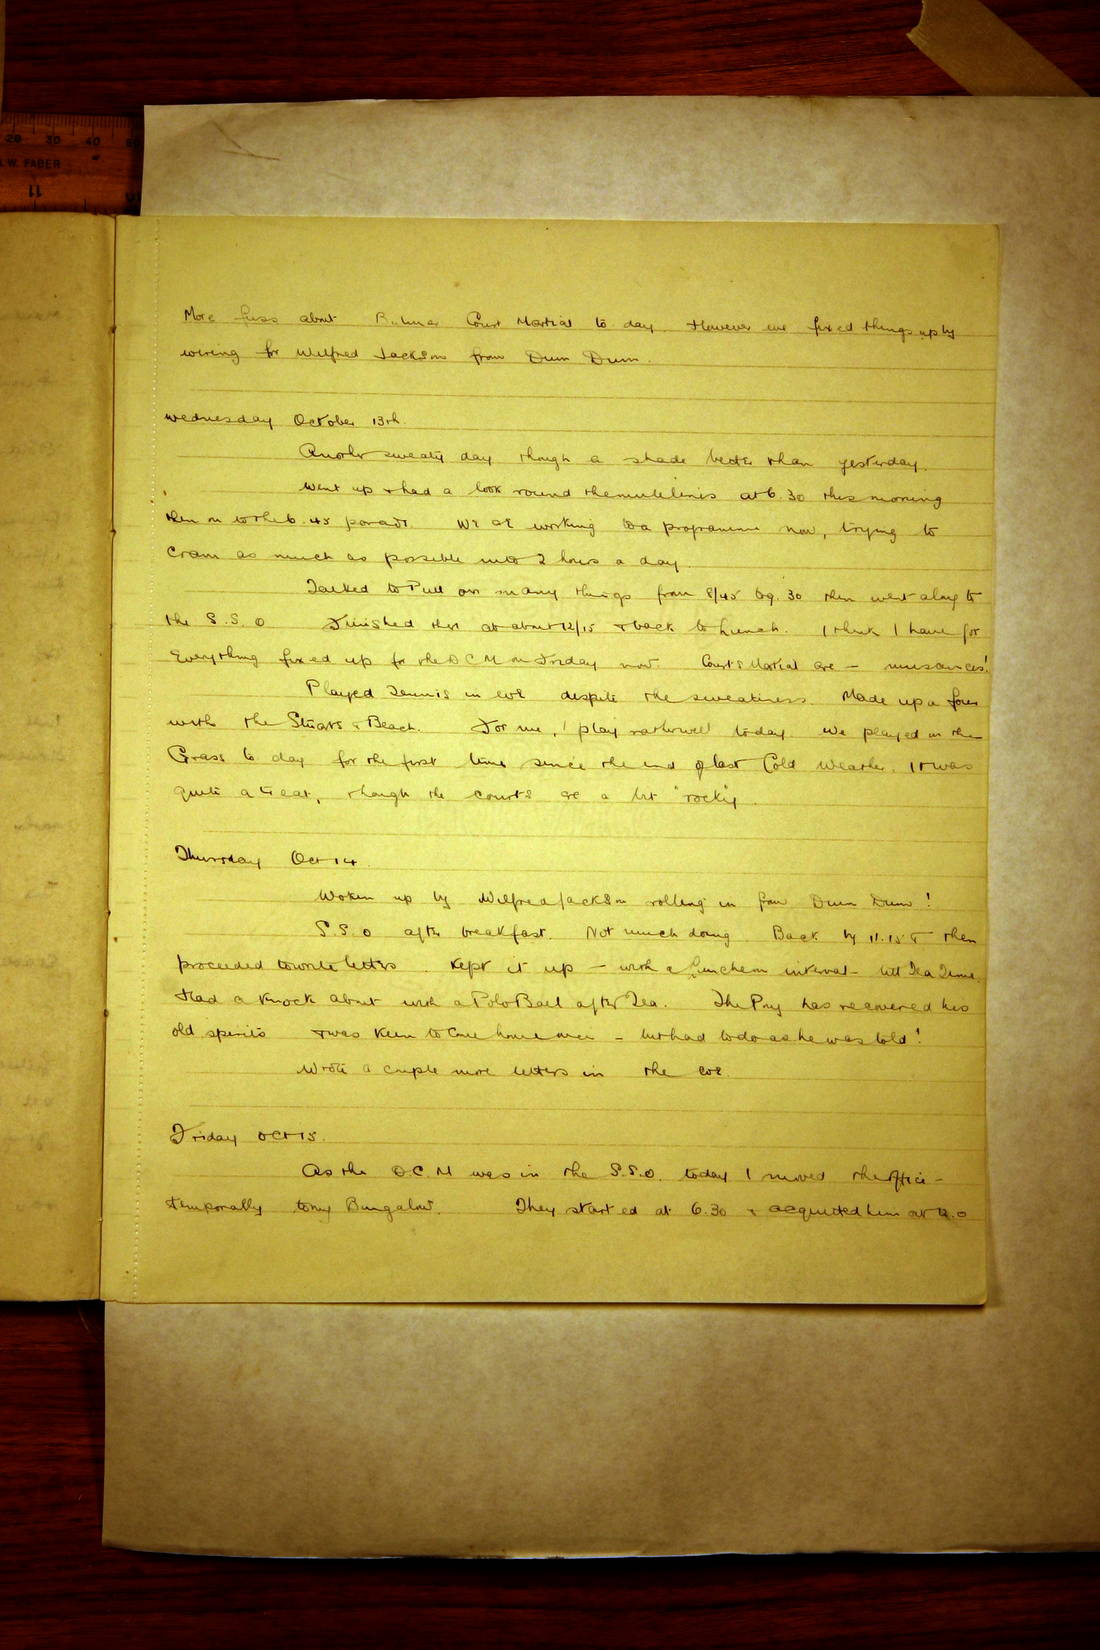 20 30 40
W. FABER
11
More fuss about Court Martial to day However we fixed things up by
wiring for Wilfred Jackson from Dum Dum.
Wednesday October 13th.
Another sweaty day though a shade better than yesterday.
Went up & had a look round the mule lines at 6.30 this morning
then on to the 6.45 parade. We are working to a programme now, trying to
cram as much as possible into 2 hours a day.
Talked to on many things from 8/45 to 9.30 then went along to
the S.S.O Finished there at about 12/15 & back to Lunch. I think I have got
Everything fixed up for the D.C.M on Friday now Courts Martial are — nuisances!
Played Tennis in eve despite the sweatiness. Made up a four
with the & Beach. For me, I play rather well today. We played on the
Grass to day for the first time since the end of last Cold Weather. It was
quite a treat, though the courts are a bit "rocky".
Thursday Oct 14.
Woken up by Wilfred Jackson rolling in from Dum Dum!
S.S.O after breakfast. Not much doing. Back by 11.15 & then
proceeded to write letters. Kept it up — with a Luncheon interval — till Tea Time.
Had a knock about with a Polo Ball after Tea. The Pny has recovered his
old spirits & was keen to come home — but had to do as he was told!
Wrote a couple more letters in the eve.
Friday Oct 15.
As the D.C.M was in the S.S.O. today I moved the office -
temporally to my Bungalow. They started at 6.30 & acquitted him at